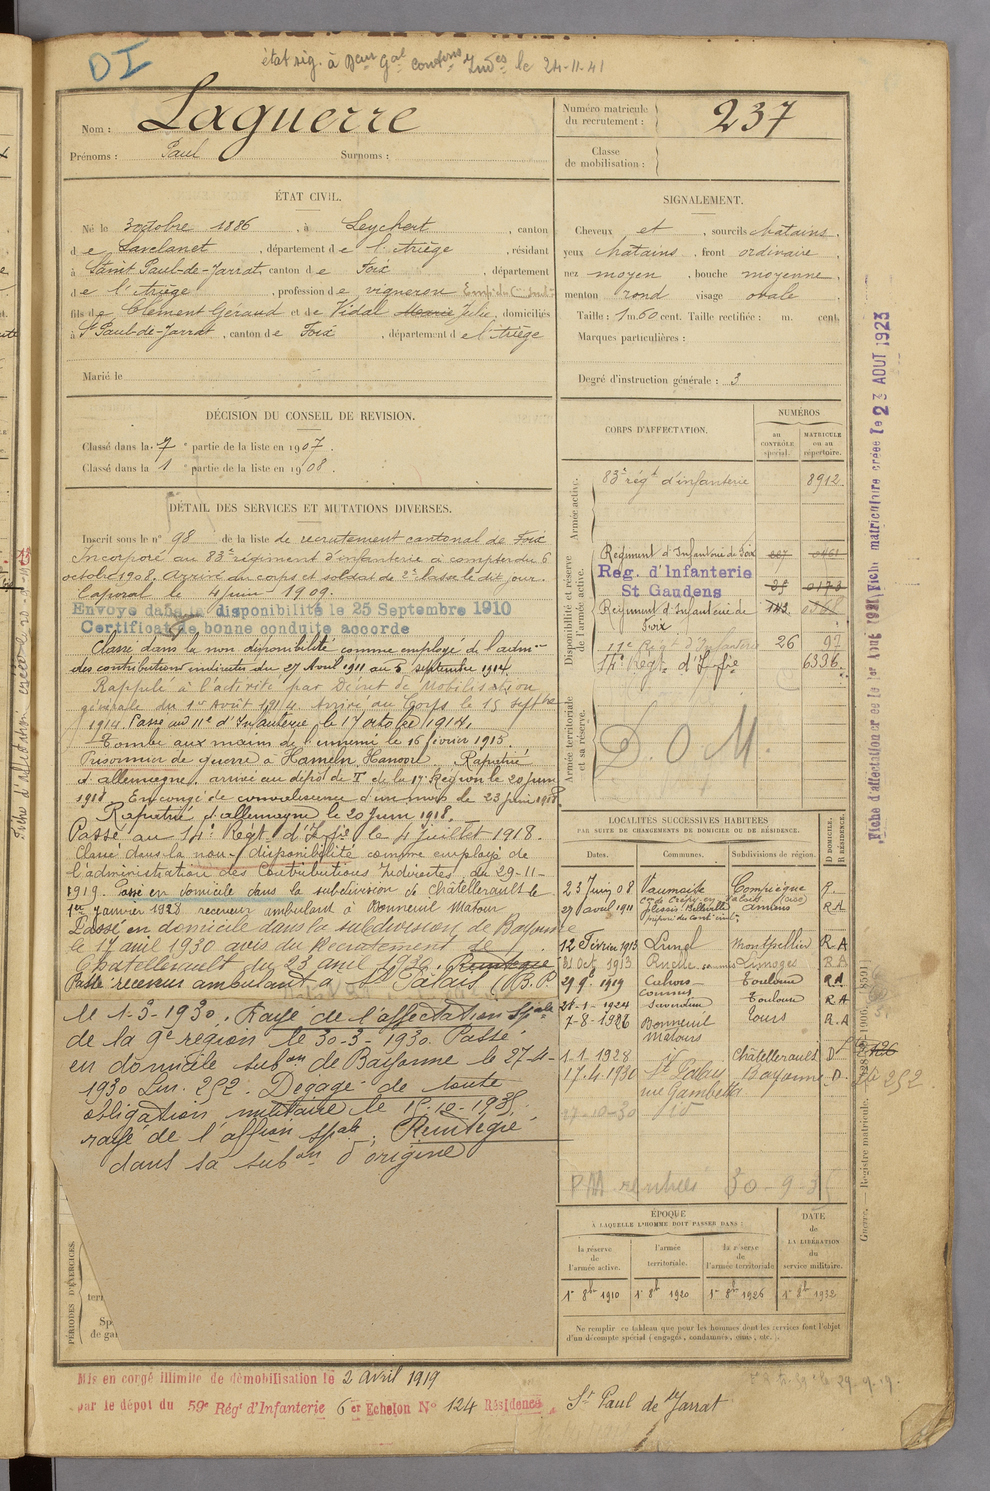 DI
état sig. à le 24-11-41
Nom : Laguerre
Prénoms : Paul Surnoms :
Numéro matricule du recrutement : 237
Classe de mobilisation :
ÉTAT CIVIL.
Né le 3 octobre 1886, à Leychert, canton
de Lavelanet, département de l'Ariège, résidant
à Saint Paul-de-Jarrat, canton de Foix, département
de l'Ariège, profession de vigneron
fils de Clément Géraud et de Vidal Marie Julie, domiciliés
à St Paul-de-Jarrat, canton de Foix, département de l'Ariège
Marié le
SIGNALEMENT.
Cheveux et, sourcils chatains,
yeux chatains, front ordinaire,
nez moyen, bouche moyenne,
menton rond visage ovale
Taille : 1 m. 60 cent. Taille rectifiée : m. cent.
Marques particulières :
Degré d'instruction générale : 3
DÉCISION DU CONSEIL DE REVISION.
Classé dans la 7e partie de la liste en 1907.
Classé dans la 1e partie de la liste en 1908.
DÉTAIL DES SERVICES ET MUTATIONS DIVERSES.
Inscrit sous le n° 98 de la liste de recrutement cantonal de Foix
Incorporé au 83e régiment d'infanterie à compter du 6
octobre 1908. Arrivé au corps et soldat de 2e classe le dit jour.
Caporal le 4 juin 1909.
Envoyé dans la disponibilité le 25 Septembre 1910
Certificat de bonne conduite accordé
Classé dans la non disponibilité comme employé de l'adm-on
des contributions indirectes du 27 Avril 1911 au 5 septembre 1914.
Rappelé à l'activité par Décret de Mobilisation
générale du 1er Août 1914. Arrivé au Corps le 15 septbre
1914. Passé au 11e d'Infanterie, le 17 octobre 1914.
Tombé aux mains de l'ennemi le 16 février 1915.
Prisonnier de guerre à Hameln, Hanovre. Rapatrié
d'allemagne, arrivé au dépôt de Tr de la 17e Région le 20 juin
1918. En congé de convalescence d'un mois le 23 juin 1918.
Rapatrié d'allemagne le 20 juin 1918.
Passé au 14e Régt. d'Infie le 4 juillet 1918.
Classé dans la non-disponibilité comme employé de
l'administration des Contributions Indirectes, du 29-11-
1919. Passé en domicile dans la subdivision de Châtellerault le
1er Janvier 1928 receveur ambulant à Bonneuil Matour
Passé en domicile dans la subdivision de Bayonne
le 17 avril 1930 avis du Recrutement de
Châtellerault du 23 avril 1930. Réintégré
Passé receveur ambulant à St Palais (B.P.
le 1-3-1930. Rayé de l'affectation spale
de la 9e région le 30-3-1930. Passé
en domicile subon de Bayonne le 27-4-
1930 Lm. 252. Dégagé de toute
obligation militaire le 15-10-1935.
rayé de l'affion spale, Réintégré
dans sa subon d'origine
CORPS D'AFFECTATION.
NUMÉROS
au CONTRÔLE spécial.
MATRICULE ou au répertoire.
Armée active.
83e régt d'infanterie 8912
Disponibilité et réserve de l'armée active.
Régiment d'Infanterie de Foix
Reg. d'Infanterie
St Gaudens
Régiment d'Infanterie de Foix
11e Régt d'Infanterie 26 97
14e Régt. d'Infie 6336
Armée territoriale et sa réserve.
D. O M.
LOCALITÉS SUCCESSIVES HABITÉES
PAR SUITE DE CHANGEMENTS DE DOMICILE OU DE RÉSIDENCE.
Dates. Communes. Subdivisions de région. D DOMICILE. R RÉSIDENCE.
23 Juin 08 Vaumoise Compiègne R.
27 avril 1911 Plessis Belleville Amiens R A
12 Février 1913 Lunel Montpellier R.A
31 Oct 1913 Limoges R A
29 9 1919 Cahors Toulouse R A
28-1-1924 Toulouse R A
7-8-1926 Bonneuil Matours Tours R.A
1.1.1928 Châtellerault D
17.4.1930 St Palais Bayonne D. 252
rue Gambetta
27-10-30
30-9-35
ÉPOQUE
À LAQUELLE L'HOMME DOIT PASSER DANS :
la réserve de l'armée active. l'armée territoriale. la réserve de l'armée territoriale
DATE de LA LIBÉRATION du service militaire.
1er 8bre 1910 1er 8bre 1920 1er 8bre 1926 1er 8bre 1932
Ne remplir ce tableau que pour les hommes dont les services font l'objet
d'un décompte spécial (engagés, condamnés, omis, etc.).
PÉRIODES D'EXERCICES.
Mis en congé illimité de démobilisation le 2 avril 1919
par le dépôt du 59e Rég' d'Infanterie 6er Echelon N° 124 Résidence St Paul de Jarrat
Fiche matriculaire créée le 23 AOUT 1923
Guerre. — Registre matricule.